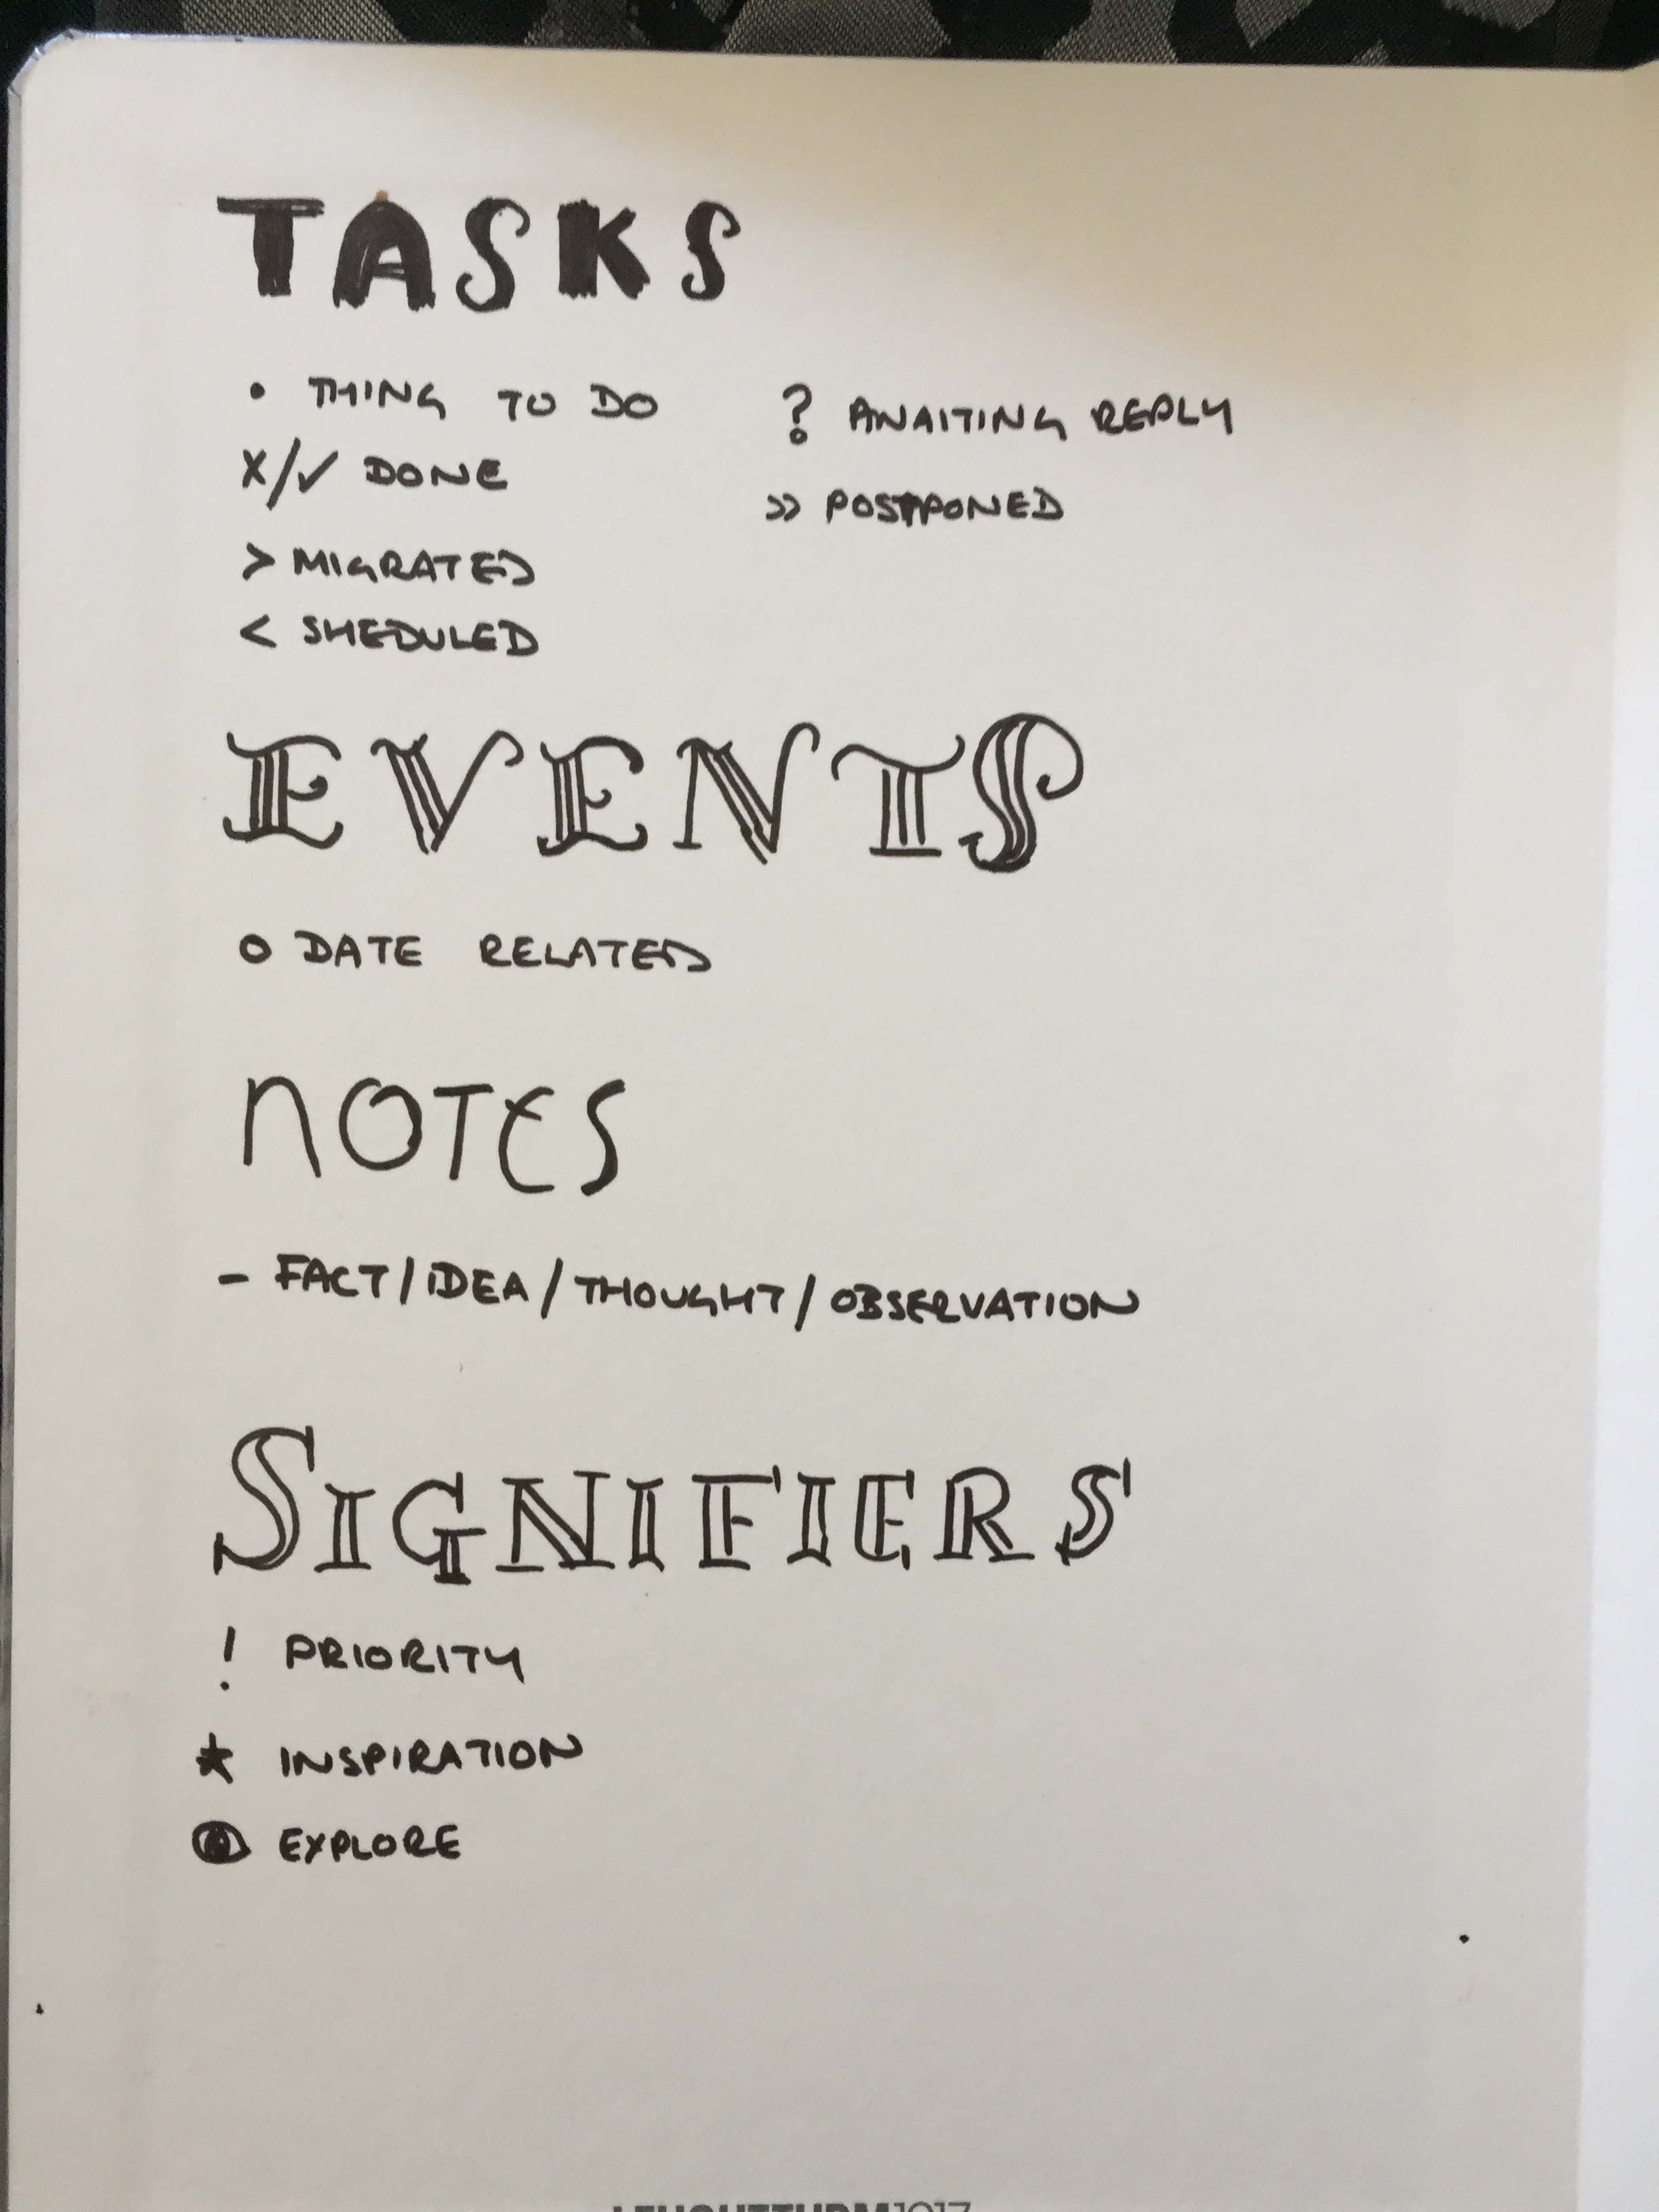 TASKS
• THING TO DO
X/✓ DONE
> MIGRATED
< SHEDULED
? AWAITING REPLY
>> POSTPONED
EVENTS
O DATE RELATED
NOTES
- FACT/IDEA/THOUGHT/OBSERVATION
SIGNIFIERS
! PRIORITY
★ INSPIRATION
👁 EXPLORE
LEUCHTTURM1917